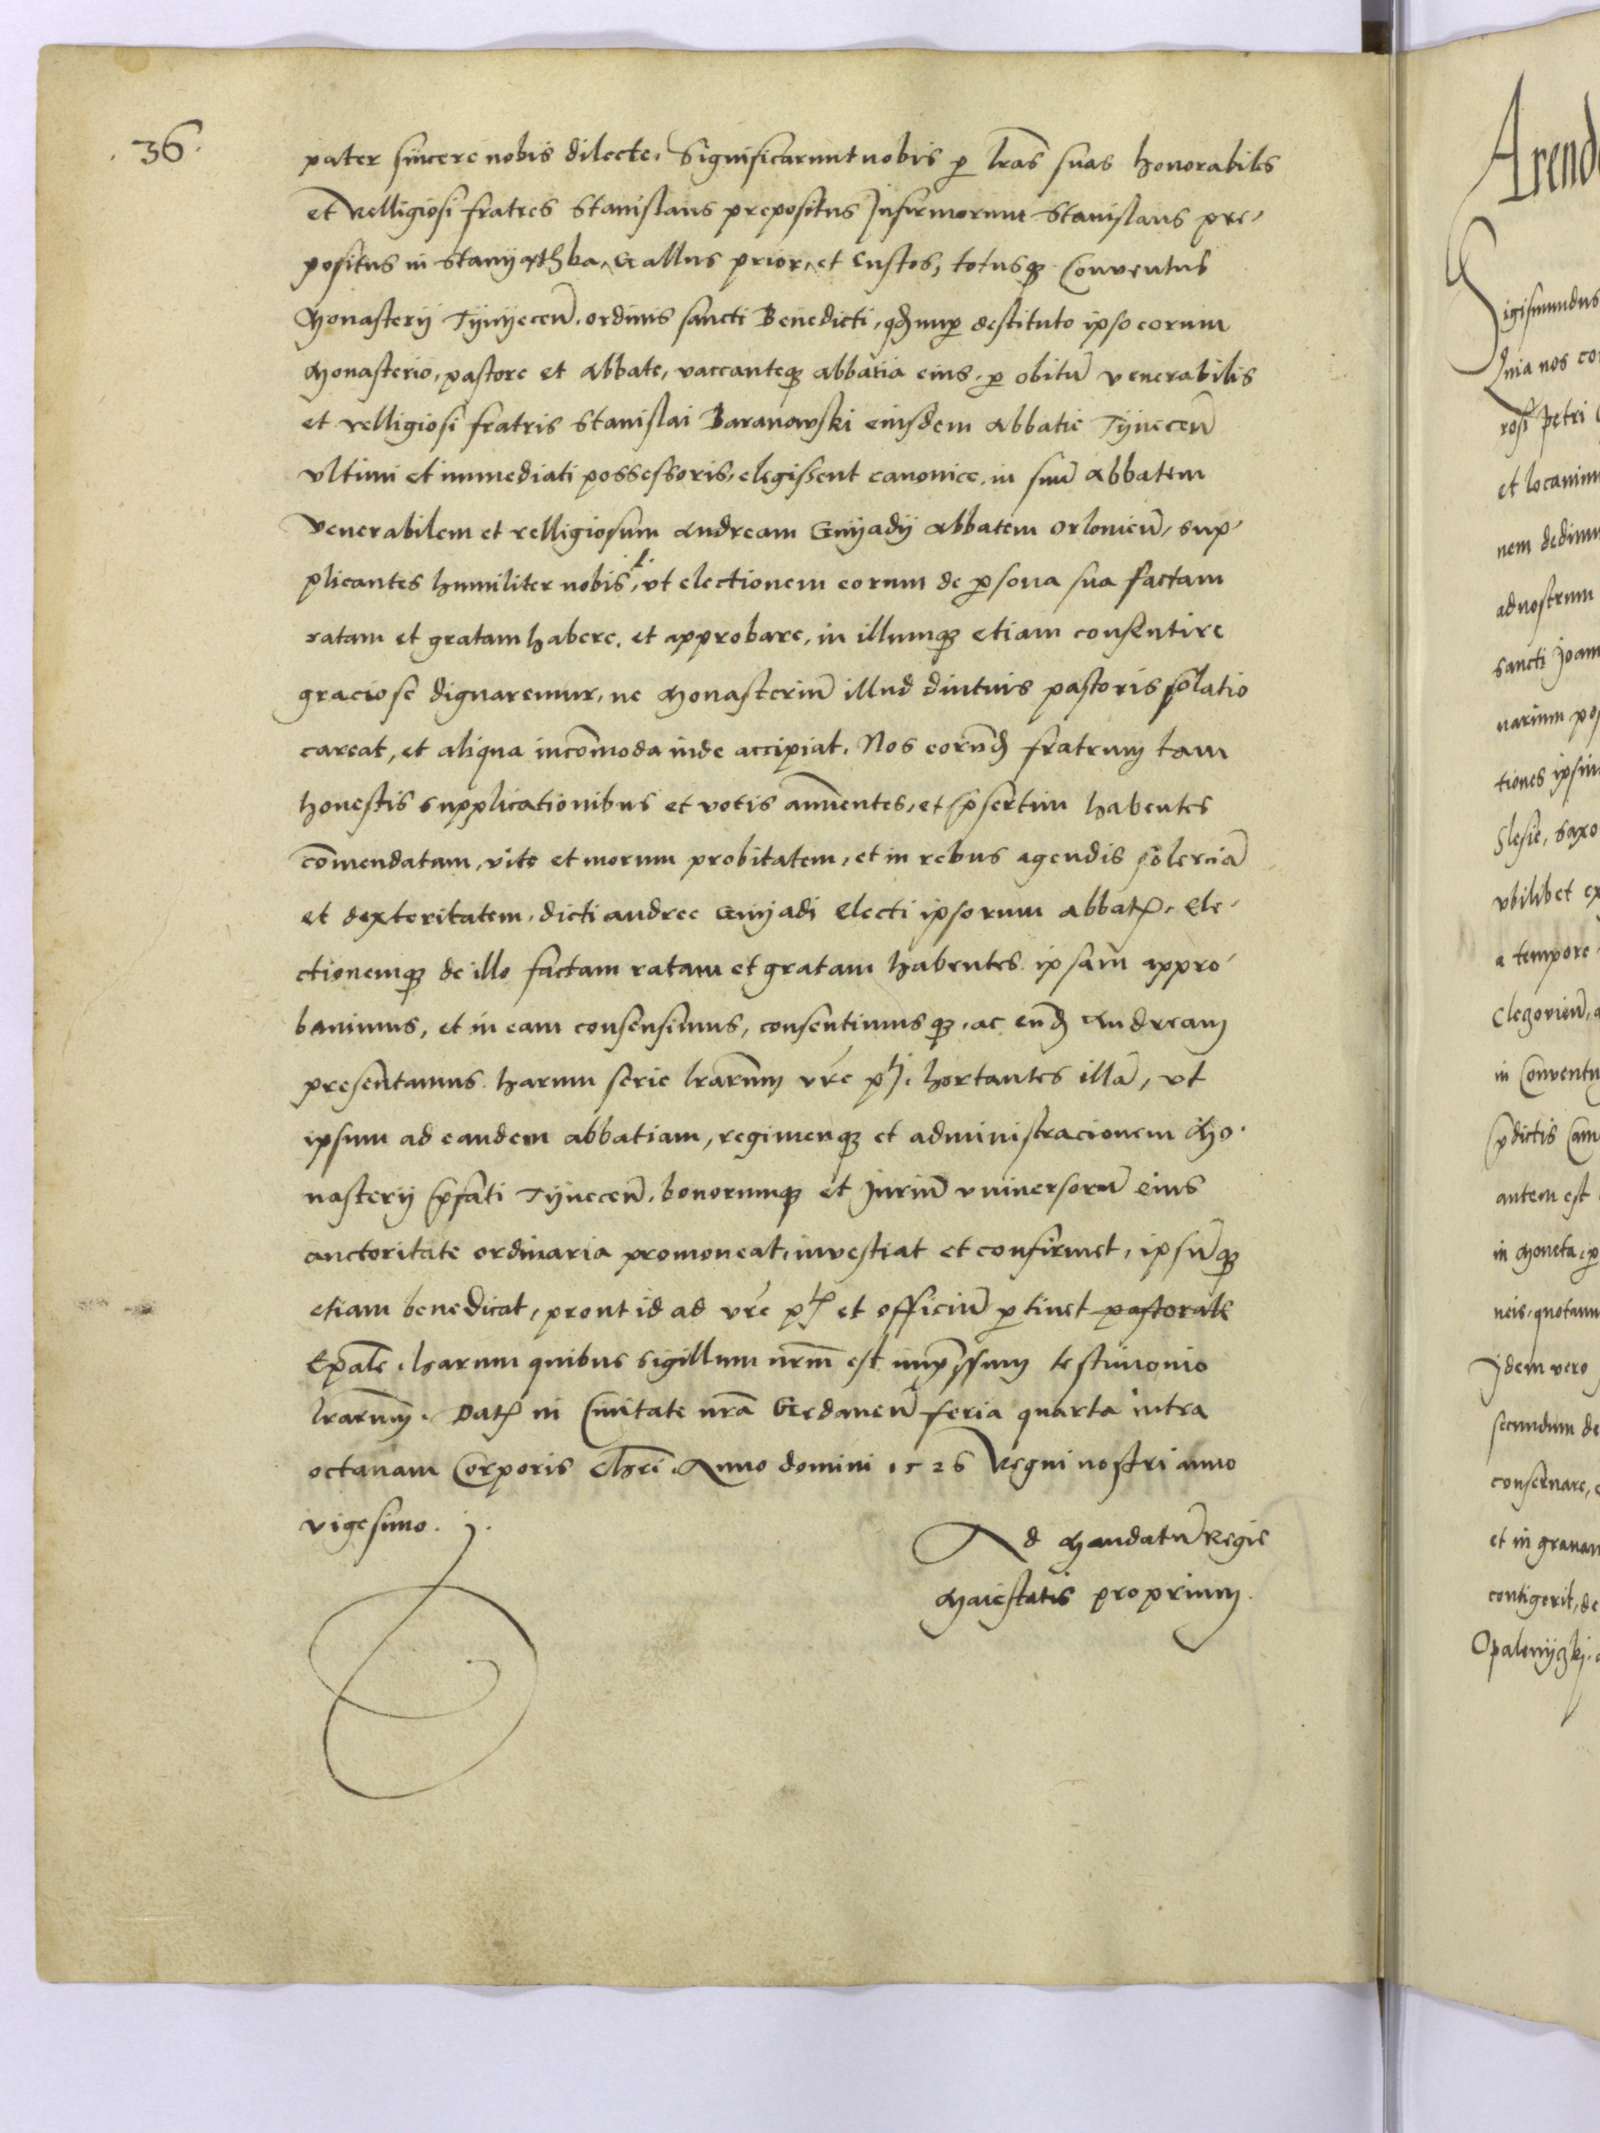 .36.
pater sincere nobis dilecte. Significarunt nobis p lras suas honorabiles
et Relligiosi fratres Stanislaus prepositus Infirmorum Stanislaus pre-
positus in Stanyathka, Gallus prior, et Custos, totusq Conventus
Monasterij Tynyecen. ordinis sancti Benedicti, qd nup destituto ipso eorum
Monasterio, pastore et Abbate, vaccanteq abbatia eius, p obitu venerabilis
et relligiosi fratris Stanislai Baranowski eiusdem Abbatie Tynecen
ultimi et immediati possessoris, elegissent canonice, in suu Abbatem
Venerabilem et relligiosum Andream Gnyadij Abbatem Orlovien, sup-
plicantes humiliter nobis, ut electionem eorum de psona sua factam
ratam et gratam habere, et approbare, in illumq etiam consentire
graciose dignaremur, ne Monasteriu illud diutius pastoris solatio
careat, et aliqua incomoda inde accipiat. Nos eorund fratrum tam
honestis supplicationibus et votis annentes, et psertim habentes
comendatam, vite et morum probitatem, et in rebus agendis solercia
et dexteritatem, dicti andree Gnyadi Electi ipsorum abbat, Ele-
ctionemq de illo factam ratam et gratam habentes ipsam appro-
bavimus, et in eam consensimus, consentimusq, ac eund Andream
presentamus harum serie lrarum vre pti. hortantes illa, ut
ipsum ad eandem abbatiam, regimenq et administracionem Mo-
nasterij pfati Tynecen, bonorumq et Juriu universoru eius
auctoritate ordinaria promoveat, investiat et confirmet, ipsuq
etiam benedicat, prout id ad vre pt et officiu ptinet pastorale
Epale. harum quibus sigillum nrm est impssum testimonio
lrarum. Dat in Civitate nra Gedanen feria quarta intra
octavam Corporis Chri. Anno domini 1526 Regni nostri anno
vigesimo.
Ad Mandatu Regie
Maiestatis proprium.
Arend
Sigismundus
Quia nos co
rosi Petri
et locavim
nem dedimu
ad nostrum
sancti Joan
narium pos
tiones ipsiu
Slesie, Saxo
ubilibet ex
a tempore
Clegovien, a
in Conventu
pdictis Cam
autem est
in Moneta, p
neis, quotann
Idem vero
secundum de
conservare, e
et in gravam
contigerit, de
Opalenyczkj.